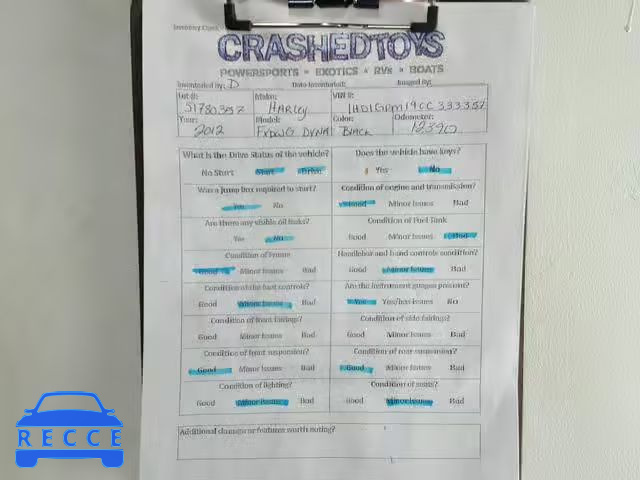 Inventory Clerk
CRASHEDTOYS
POWERSPORTS • EXOTICS • RVs • BOATS
Inventoried By: D Date Inventoried: Imaged By:
Lot #: Make: VIN #:
51780357 HARLEY
Year: Model: Color: Odometer:
2012 FXDWG DYNA BLACK 12390
What is the Drive Status of the vehicle? Does the vehicle have keys?
No Start Start Drive Yes No
Was a jump box required to start? Condition of engine and transmission?
Yes No Good Minor Issues Bad
Are there any visible oil leaks? Condition of Fuel Tank
Yes No Good Minor Issues Bad
Condition of Frame Handlebar and hand controls condition?
Good Minor Issues Bad Good Minor Issues Bad
Condition of the foot controls? Are the instrument gauges present?
Good Minor Issues Bad Yes Yes/has issues No
Condition of front fairings? Condition of side fairings?
Good Minor Issues Bad Good Minor Issues Bad
Condition of front suspension? Condition of rear suspension?
Good Minor Issues Bad Good Minor Issues Bad
Condition of lighting? Condition of seats?
Good Minor Issues Bad Good Minor Issues Bad
Additional damage or features worth noting?
RECCE